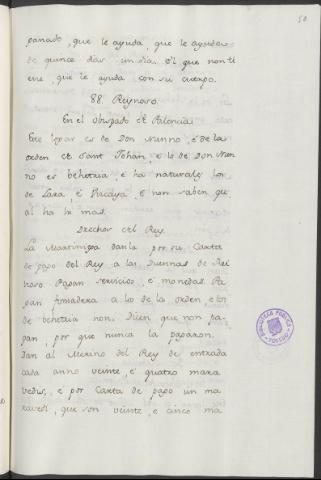 50
panado, que le ayuda, que le ayudes
de quince dias un dia. él que non ti
ene, que le ayuda con su cuerpo.
88. Reynoso.
En el obispado de Palencia.
Este logar es de Don Nunno, é de la
orden de Sant Johan, é lo de Don Nun
no es behetria, é ha naturales los de
Lara, é Vizcaya, é non saben que
al ha hi mas.
Drechos del Rey.
La Martiniega danla por su Carta
de pago del Rey a las Duennas de Rei
noso. Pagan servicios, é monedas. Pa
gan fonsadera á lo de la orden, é lo
de behetria non. Dicen que non pa
gan, por que nunca la pagaron.
Dan al Merino del Rey de entrada
cada anno veinte, é quatro mara
vedis, é por Carta de pago un ma
ravedi, que son veinte, é cinco ma
BIBLIOTECA PUBLICA
TOLEDO